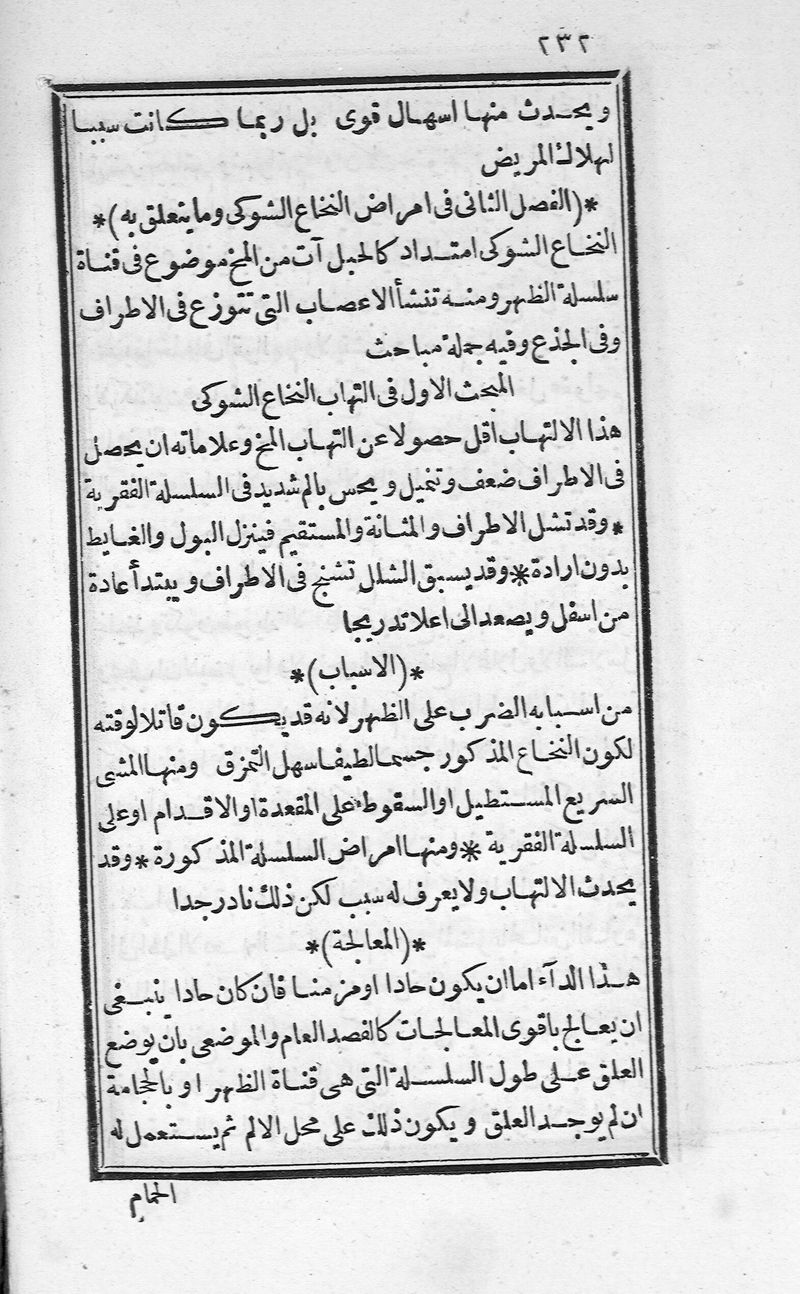 ٢٣٢
ويحدث منها اسهال قوى بل ربما كانت سببا
لهلاك المريض
*(الفصل الثانى فى امراض النخاع الشوكى وما يتعلق به)*
النخاع الشوكى امتداد كالحبل آت من المخ موضوع فى قناة
سلسلة الظهر ومنه تنشأ الاعصاب التى تتوزع فى الاطراف
وفى الجذع وفيه جملة مباحث
المبحث الاول فى التهاب النخاع الشوكى
هذا الالتهاب اقل حصولا عن التهاب المخ وعلاماته ان يحصل
فى الاطراف ضعف وتنميل ويحس بالم شديد فى السلسلة الفقرية
* وقد تشل الاطراف والمثانة والمستقيم فينزل البول والغايط
بدون ارادة * وقد يسبق الشلل تشنج فى الاطراف ويبتدأ عادة
من اسفل ويصعد الى اعلا تدريجا
*(الاسباب)*
من اسبابه الضرب على الظهر لانه قد يكون قاتلا لوقته
لكون النخاع المذكور جسما لطيفا سهل التمزق ومنها المشى
السريع المستطيل او السقوط على المقعدة او الاقدام او على
السلسلة الفقرية * ومنها امراض السلسلة المذكورة * وقد
يحدث الالتهاب ولا يعرف له سبب لكن ذلك نادر جدا
*(المعالجة)*
هذا الدآء اما ان يكون حادا او مزمنا فان كان حادا ينبغى
ان يعالج باقوى المعالجات كالفصد العام والموضعى بان يوضع
العلق على طول السلسلة التى هى قناة الظهر او بالحجامة
ان لم يوجد العلق ويكون ذلك على محل الالم ثم يستعمل له
الحمام